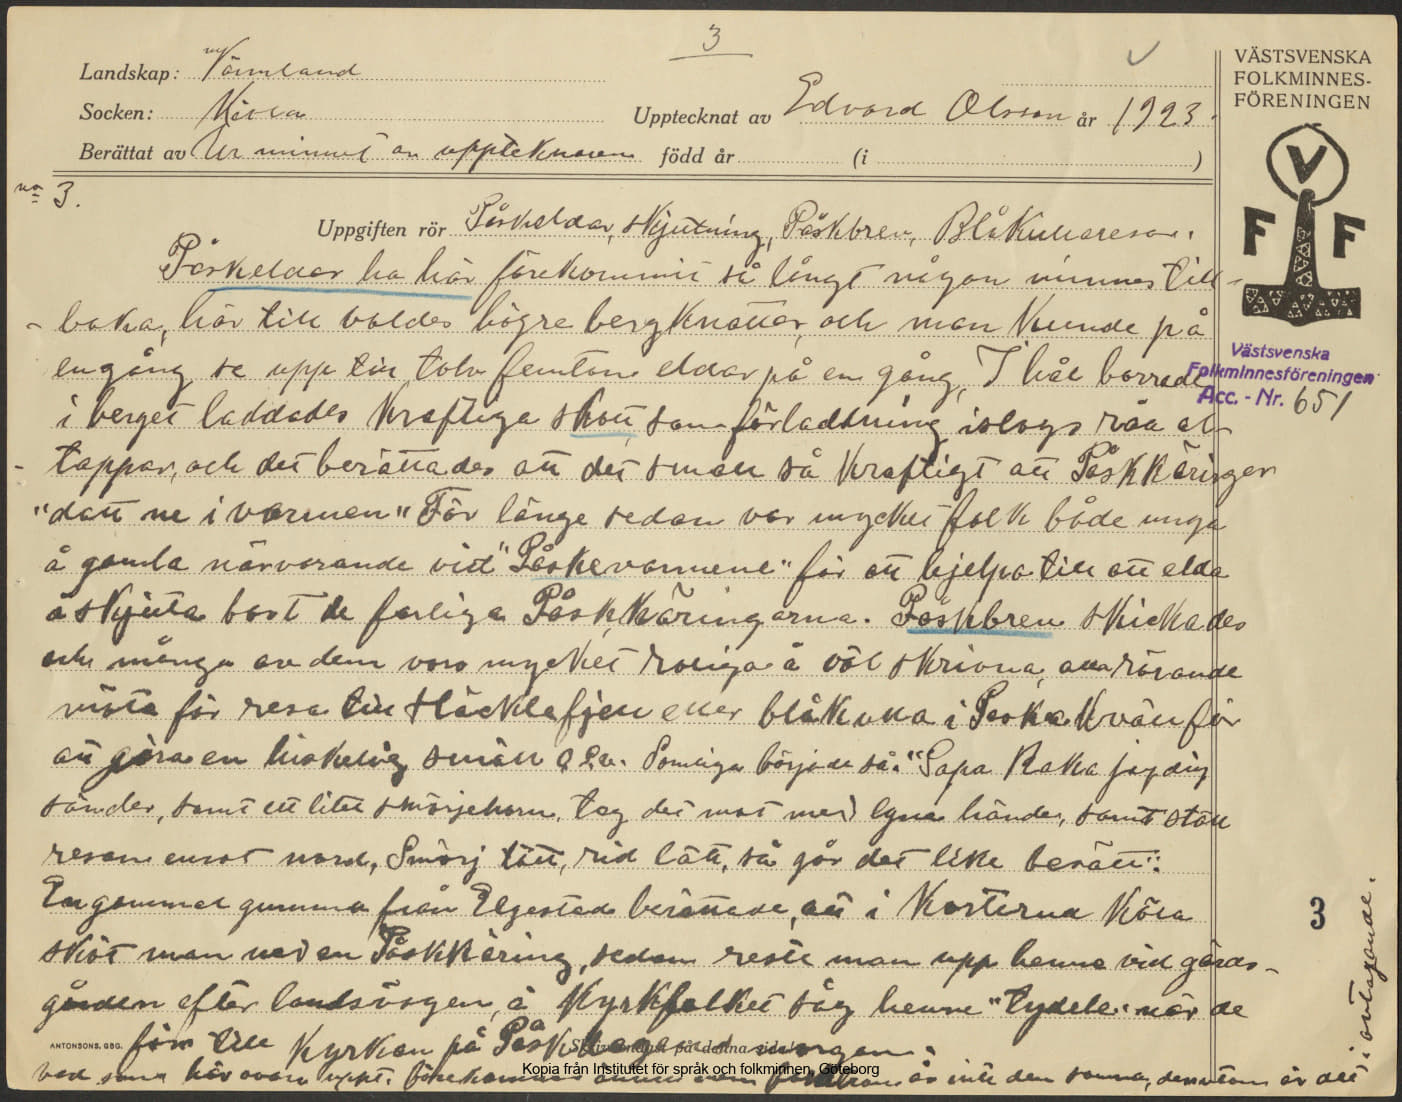 3
Landskap: Värmland
Socken: Köla
Upptecknat av Edvard Olsson år 1923.
Berättat av Ur minnet av upptecknaren född år (i )
VÄSTSVENSKA
FOLKMINNES-
FÖRENINGEN
V
F F
no 3.
Uppgiften rör Påskeldar, skjutning, Påskbrev, Blåkullaresor.
Påskeldar ha här förekommit så långt någon minnes till-
baka, här till valdes högre bergknattar, och man kunde på
engång se upp till tolv femton eldar på en gång, I hål borrade
i berget laddades kraftiga skott, som förladdning islogs råa al-
tappar, och det berättades att det small så kraftigt att Påskkäringer
"datt ne i varmen" För länge sedan var mycket folk både unga
å gamla närvarande vid "Påskevarmene" för att hjelpa till att elda
å skjuta bort de farliga Påskkäringarna. Påskbrev skickades
och många av dem voro mycket roliga å väl skrivna, alla rörande
resa till Häcklefjell eller blåkulla i Påska kväll för
att göra en hiskelig smäll o.s.v. Somliga började så: "Sapa Raka jag dig
sänder, samt ett litet smörjehorn, tag det mot med egna händer, samt ställ
resan emot nord, Smörj tätt, rid lätt, så går det like berätt":
En gammal gumma från Elgestad berättade, att i Kösterud Köla
sköt man ned en Påskkäring, sedan reste man upp henne vid gärds-
gården efter landsvägen, å Kyrkfolket såg henne "tydele" när de
for till kyrkan på Påskdagens morgon.
vad som här ovan uppt. förekommer är inte den samma, dessutom är det
i avtagande.
Västsvenska
Folkminnesföreningen
Acc. - Nr. 651
3
ANTONSONS, GBG.
Skriv endast på denna sida!
Kopia från Institutet för språk och folkminnen, Göteborg